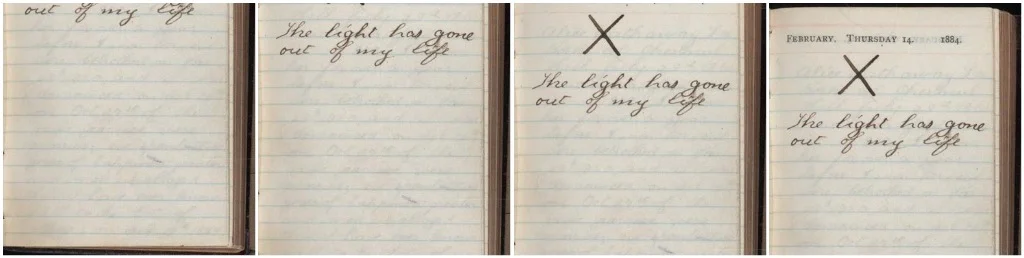 out of my life
The light has gone
out of my life
X
The light has gone
out of my life
FEBRUARY, THURSDAY 14. 1884.
X
The light has gone
out of my life